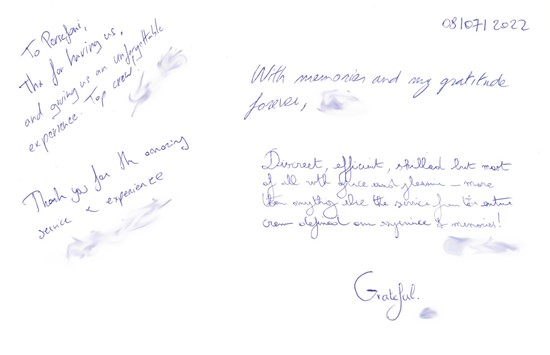 To
Thx for having us,
and giving us an unforgettable
experience. Top crew,
Thank you for the amazing
service & experience
08/07/2022
With memories and my gratitude
forever,
Discreet, efficient, skilled but most
of all with grace and pleasure – more
than anything else the service from the entire
crew defined our experience & memories!
Grateful.